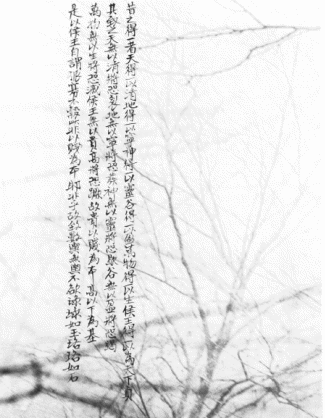 昔之得一者天得一以清地得一以寧神得一以靈谷得一以盈萬物得一以生侯王得一以為天下貞
其致之天無以清將恐裂地無以寧將恐發神無以靈將恐歇谷無以盈將恐竭
萬物無以生將恐滅侯王無以貴高將恐蹶故貴以賤為本高以下為基
是以侯王自謂孤寡不穀此非以賤為本耶非乎故致數輿無輿不欲琭琭如玉珞珞如石